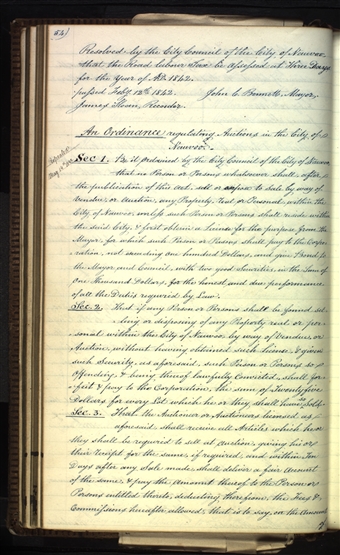 54)
Resolved by the City Council of the City of Nauvoo
that the Road labour Tax be assessed at Three Days
for the Year of A.D. 1842.
passed Feby. 12th 1842. John C Bennett, Mayor,
James Sloan, Recorder.
An Ordinance regulating Auctions in the City of
Nauvoo.
Sec 1. Be it ordained by the City Council of the City of Nauvoo
that no Person or Persons whatsoever shall, after
the publication of this Act, sell or expose to Sale by way of
Vendue, or Auction, any Property, Real or Personal, within the
City of Nauvoo, unless such Person or Persons shall reside within
the said City, & first obtain a License for the purpose from the
Mayor, for which such Person or Persons shall pay to the Corpo-
ration, not exceeding one hundred Dollars, and give Bond to
the Mayor and Council, with two good Securities, in the Sum of
One Thousand Dollars, for the honest and due performance
of all the Duties required by Law.
Sec. 2. That if any Person or Persons shall be found sel-
ling or disposing of any Property real or per-
sonal within the City of Nauvoo, by way of Vendue, or
Auction, without having obtained such License, & given
such Security, as aforesaid, such Person or Persons so
offending, & being thereof lawfully Convicted, shall for-
feit & pay to the Corporation, the sum of Twenty five
Dollars for every Lot which he or they shall have so sold.
Sec. 3. That the Auctioneer or Auctioneers licensed as
aforesaid, shall receive all Articles which he or
they shall be required to sell at Auction, giving his or
their Receipt for the same, if required, and within Ten
Days after any Sale made, shall deliver a fair Account
of the same, & pay the Amount thereof to the Person or
Persons entitled thereto, deducting therefrom, the Fees &
Commissions hereafter allowed, that is to say, on the Amount
of